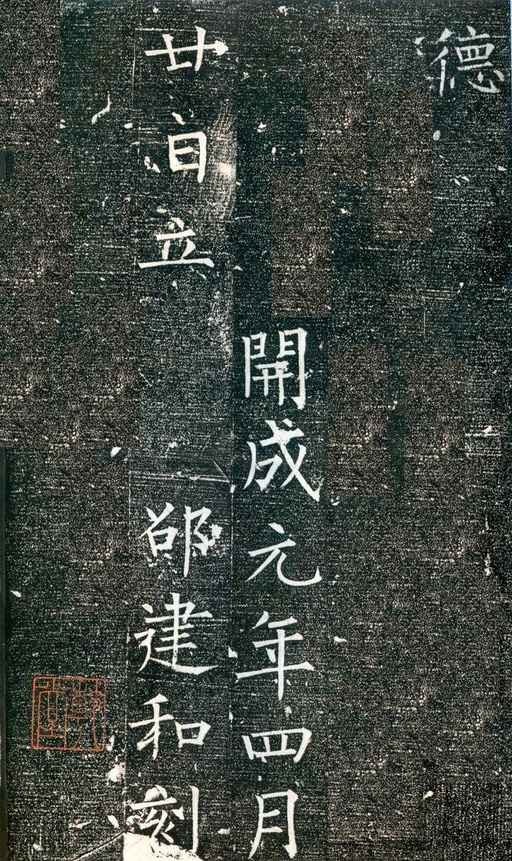 德
開成元年四月
廿日立 邵建和刻